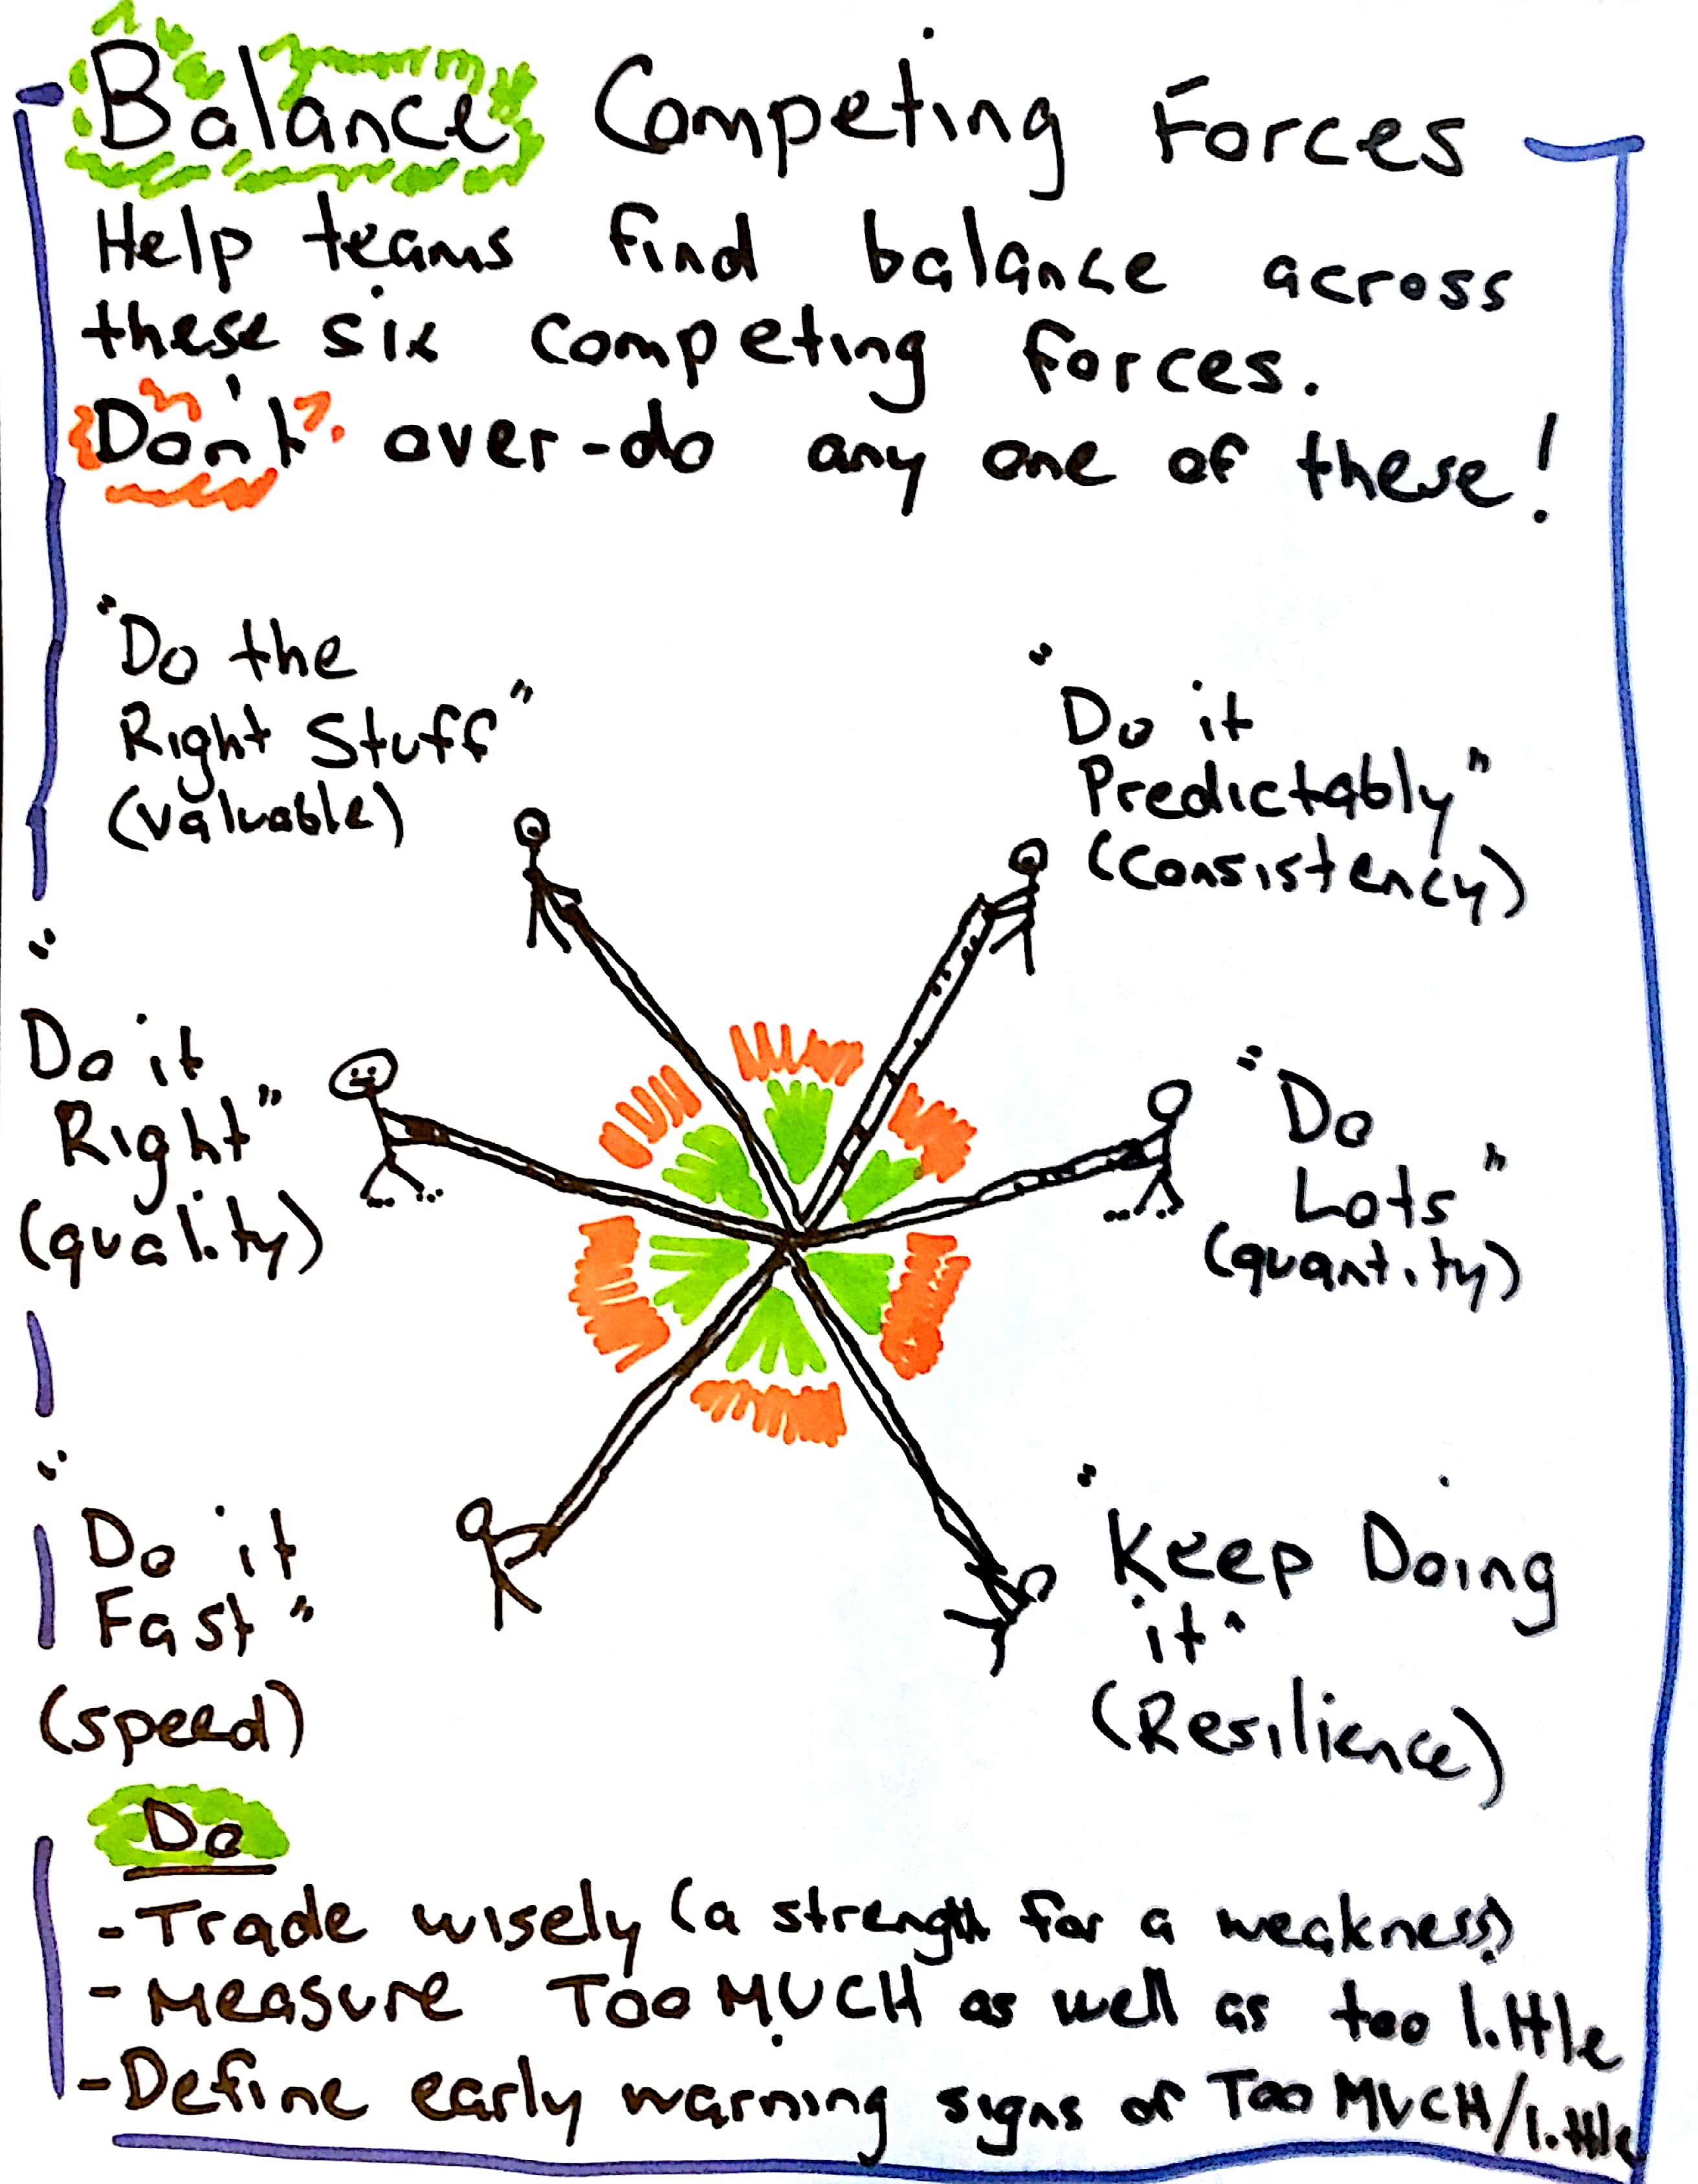 Balance Competing Forces
Help teams find balance across
these six competing forces.
Don't over-do any one of these!
"Do the
Right Stuff"
(valuable)
"Do it
Predictably"
(Consistency)
"Do it
Right"
(quality)
"Do
Lots"
(quantity)
"Do it
Fast"
(speed)
"Keep Doing
it"
(Resilience)
Do
- Trade wisely (a strength for a weakness)
- Measure TOO MUCH as well as too little
- Define early warning signs of TOO MUCH/little